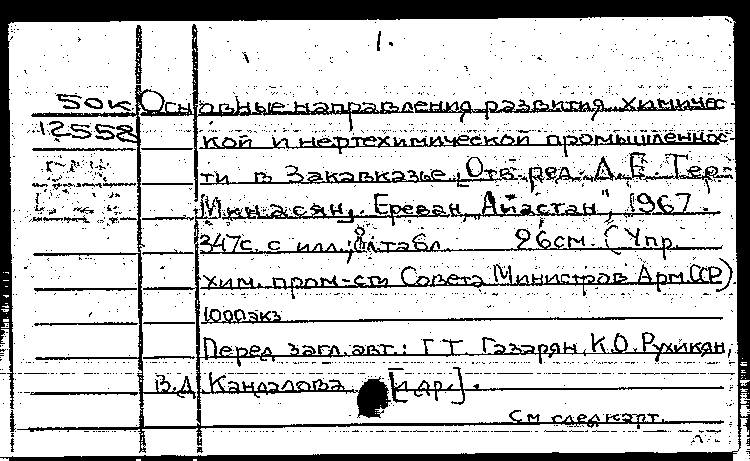 1.
50к Основные направления развития химичес-
12558 кой и нефтехимической промышленнос-
ти в Закавказье. [Отв. ред. А. Е. Тер-
Минасян]. Ереван, "Айастан", 1967.
347с. с илл.; 8л. табл. 26см. (Упр.
хим. пром-сти Совета Министров Арм.ССР)
1000экз
Перед загл. авт.: Г. Т. Газарян, К. О. Рухикян,
В. Д. Кандалова [и др.].
См след карт.